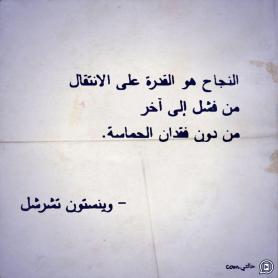 النجاح هو القدرة على الانتقال
من فشل إلى آخر
من دون فقدان الحماسة.
- وينستون تشرشل
حالتي.com